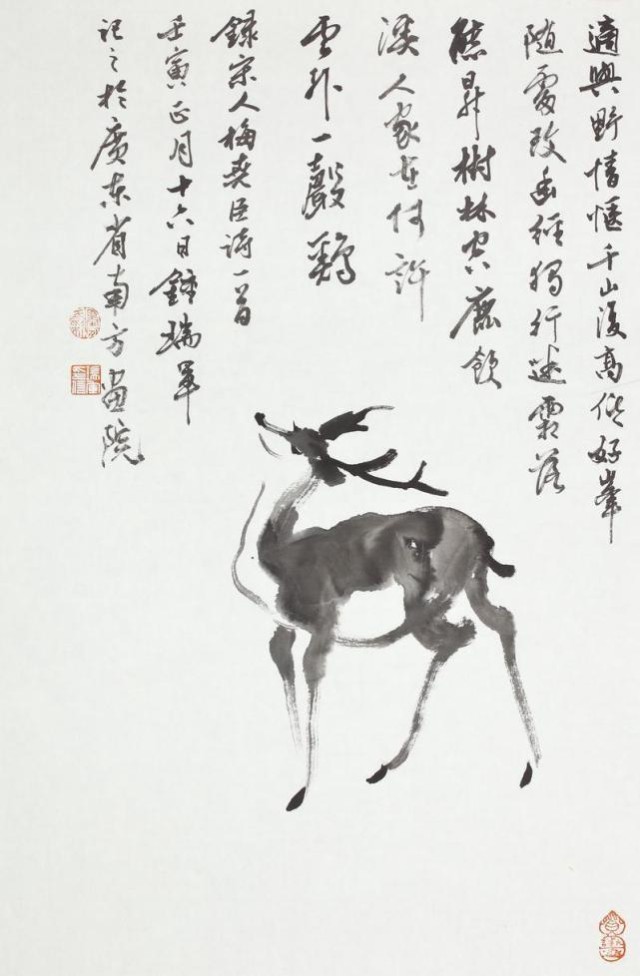 適與野情愜千山復高低好峯
隨處改幽徑獨行迷霜落
熊昇樹林空鹿飲
溪人家在何許
雲外一聲鷄
錄宋人梅堯臣詩一首
壬寅正月十六日鍾瑞軍
記之於廣東省南方畫院